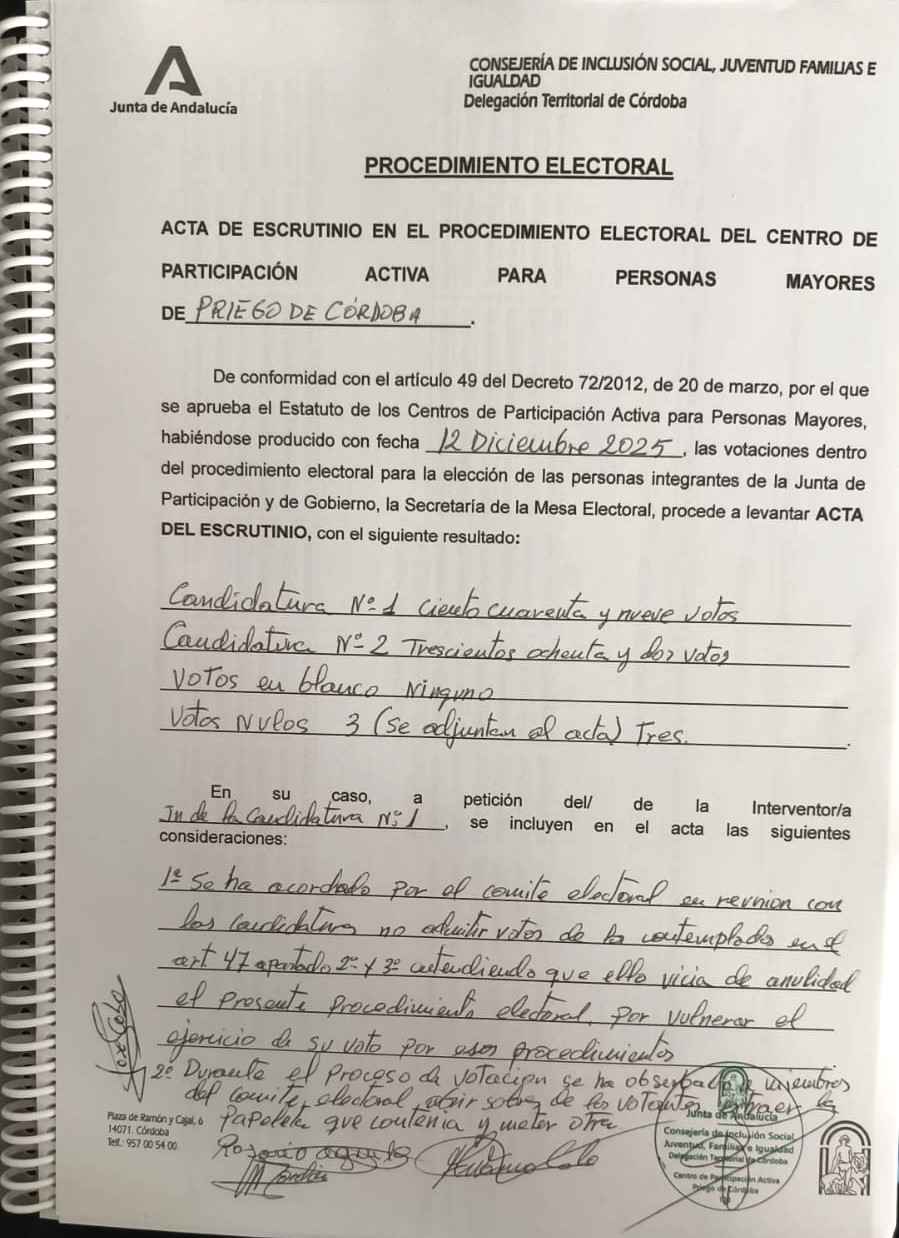 Junta de Andalucía
CONSEJERÍA DE INCLUSIÓN SOCIAL, JUVENTUD FAMILIAS E
IGUALDAD
Delegación Territorial de Córdoba
PROCEDIMIENTO ELECTORAL
ACTA DE ESCRUTINIO EN EL PROCEDIMIENTO ELECTORAL DEL CENTRO DE
PARTICIPACIÓN ACTIVA PARA PERSONAS MAYORES
DE PRIEGO DE CÓRDOBA.
De conformidad con el artículo 49 del Decreto 72/2012, de 20 de marzo, por el que
se aprueba el Estatuto de los Centros de Participación Activa para Personas Mayores,
habiéndose producido con fecha 12 Diciembre 2025, las votaciones dentro
del procedimiento electoral para la elección de las personas integrantes de la Junta de
Participación y de Gobierno, la Secretaría de la Mesa Electoral, procede a levantar ACTA
DEL ESCRUTINIO, con el siguiente resultado:
Candidatura Nº 1 Ciento cuarenta y nueve votos
Candidatura Nº 2 Trescientos ochenta y dos votos
Votos en blanco Ninguno
Votos Nulos 3 (se adjuntan al acta) Tres.
En su caso, a petición del/ de la Interventor/a
In de la Candidatura Nº 1, se incluyen en el acta las siguientes
consideraciones:
1º Se ha acordado por el comité electoral en reunion con
las candidatura no admitir votos de los contemplados en el
art 47 apartado 2º y 3º entendiendo que ello vicia de anulidad
el presente procedimiento electoral, por vulnerar el
ejercicio de su voto por esos procedimientos
2º Durante el proceso de votacion se ha obserbado a miembros
del comite electoral, abrir sobres de los votantes extraer la
papeleta que contenia y meter otra
Plaza de Ramón y Cajal, 6
14071. Córdoba
Telf.: 957 00 54 00
Rosario aguilera
Junta de Andalucía
Consejería de Inclusión Social,
Juventud, Familias e Igualdad
Delegación Territorial de Córdoba
Centro de Participación Activa
Priego de Córdoba